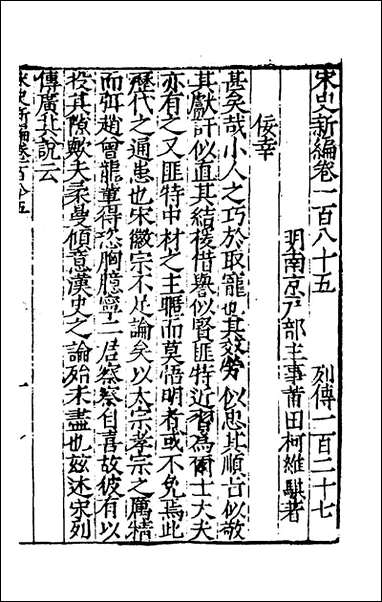 宋史新編卷一百八十五　列傳一百二十七
明南京戶部主事莆田柯維騏著
佞幸
甚矣哉小人之巧於取寵也其效勞似忠其順旨似敬
其獻計似直其結稜借譽似賢匪特近習為爾士大夫
亦有之又匪特中材之主暱而莫悟明者或不免焉此
歷代之通患也宋徽宗不足論矣以太宗孝宗之厲精
而弭趙曾龍輩得恣胸臆寧二君察察自喜故彼有以
投其隙歟夫柔曼傾意漢史之論殆未盡也玆述宋列
傳廣其說云
宋史新編卷一百八十五
一